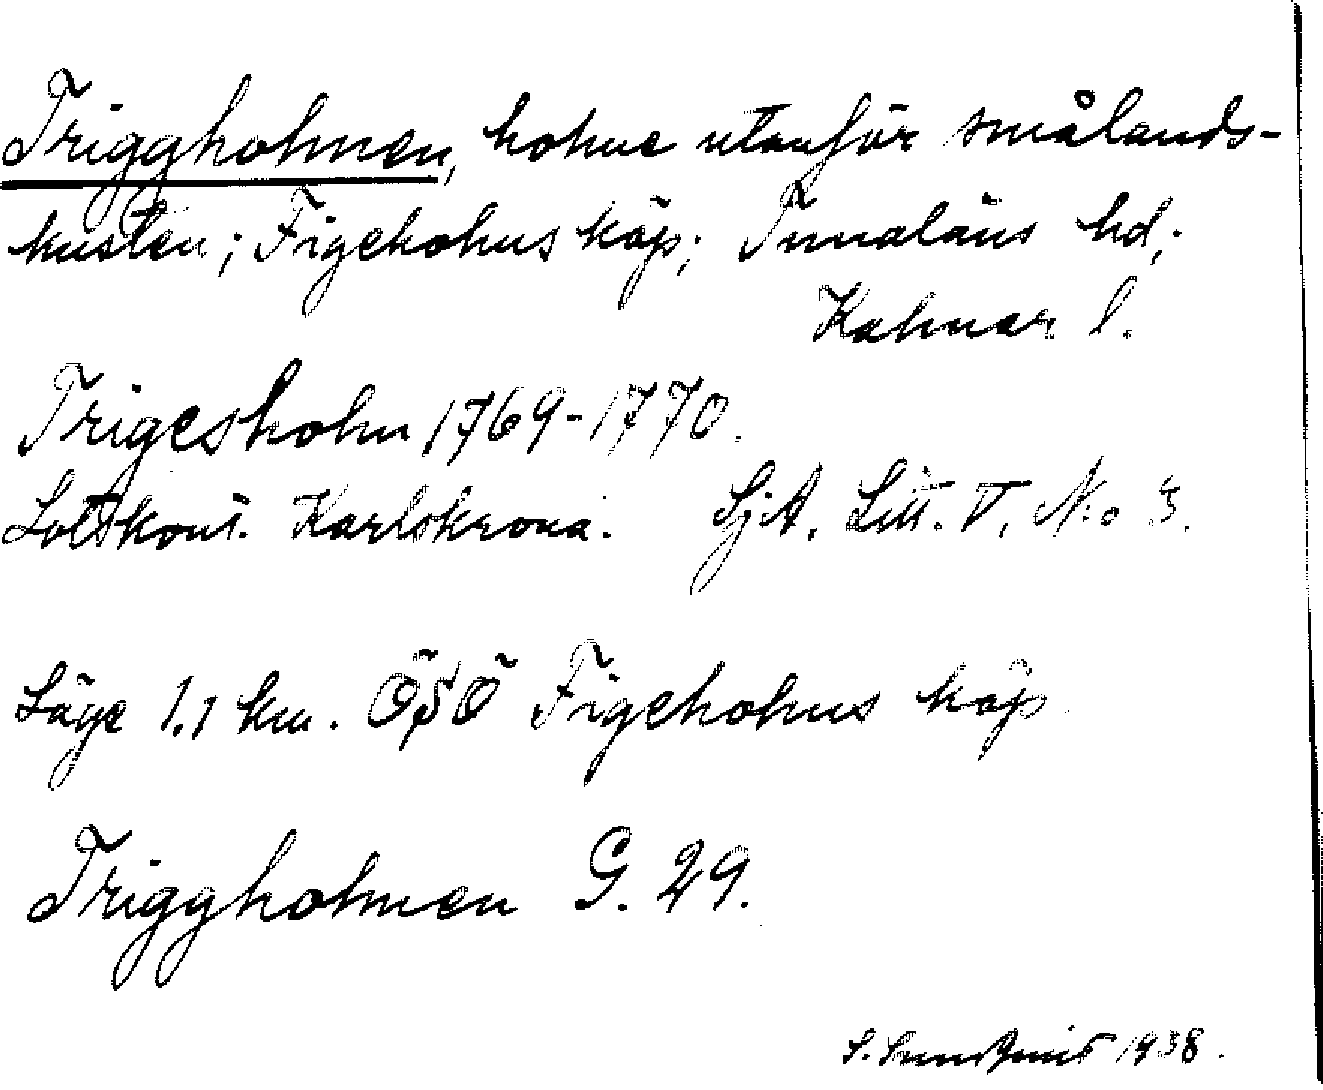 Triggholmen, holme utanför smålands-
kusten; Figeholms köp; Tunaläns hd;
Kalmar l.
Trigesholm 1769-1770.
Lotskont. Karlskrona. SjA. Litt. V. N:o 3.
Läge 1.1 km. ÖSÖ Figeholms köp
Triggholmen G. 29.
S. 1938.